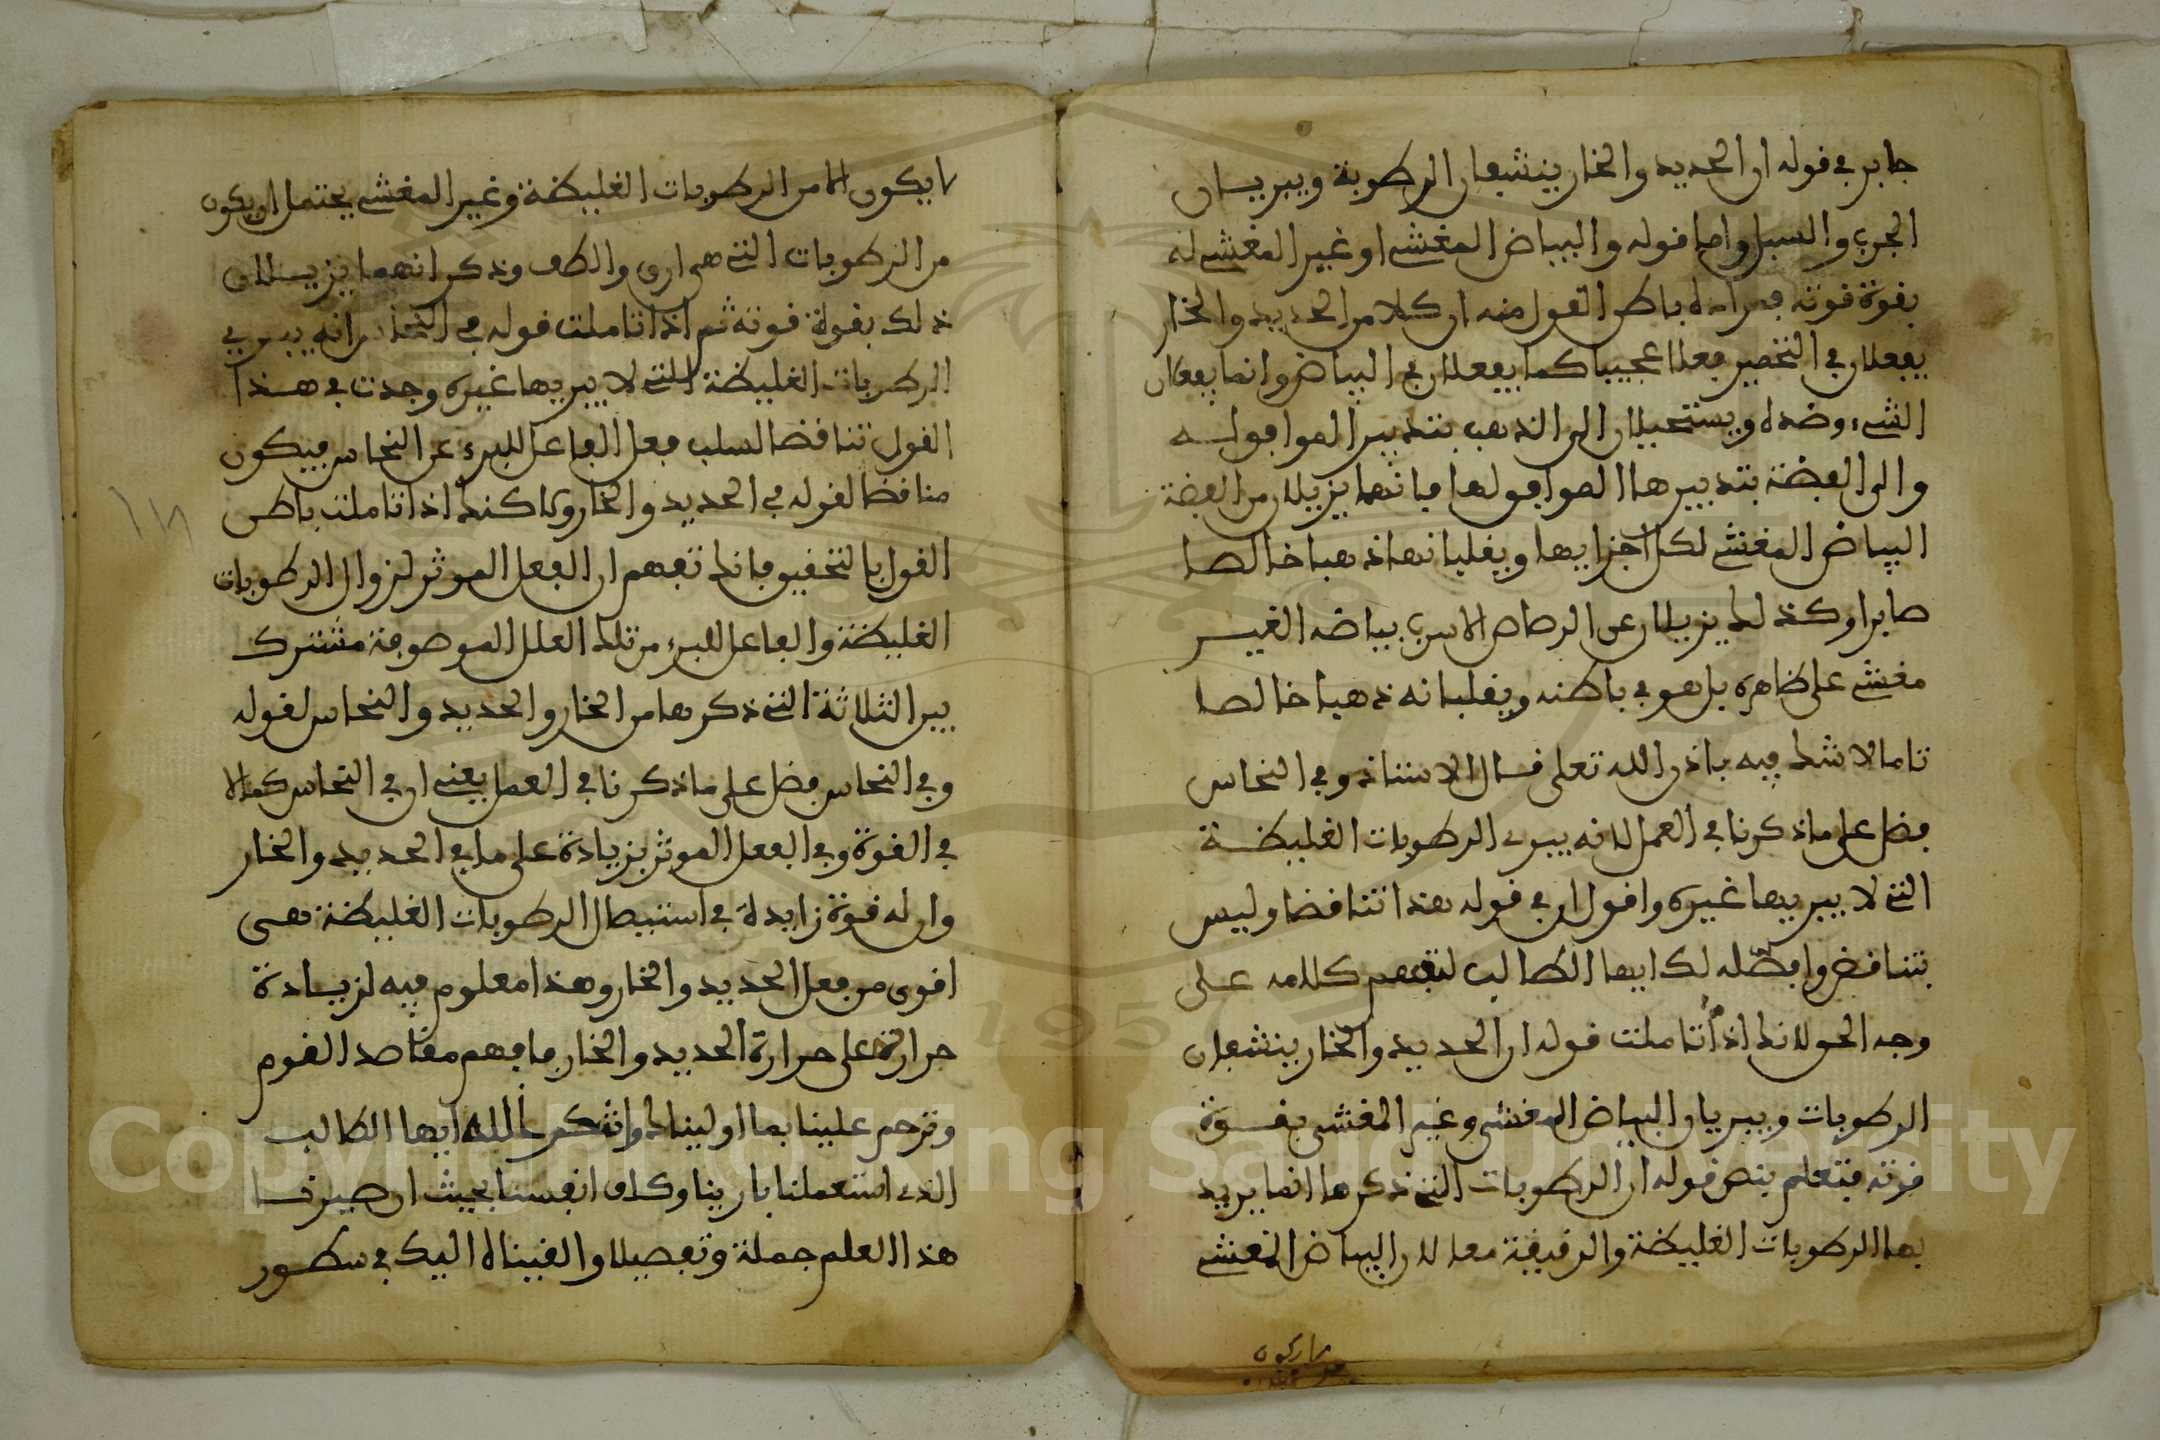 جابر في قوله ان الحديد والخار ينشفان الرطوبة ويبريان
الجرب والسبل واما قوله والبياض المغشي او غير المغشي له
بقوة قوته فمراده باطن القول منه ان كلا من الحديد والخار
يفعلان في التخصير فعلا عجيبا كما يفعلان في البياض وانما يفعلان
الشيء وضده ويستحيلان الى الذهب بتدبير الموافق له
والى الفضة بتدبيرها الموافق لها فانهما يزيلان من الفضة
البياض المغشي لكل اجزايها ويقلبانها ذهبا خالصا
صابرا وكذلك يزيلان عن الرصاص الاسرب بياضه الغير
مغشي على ظاهره بل هو في باطنه ويقلبانه ذهبا خالصا
تاما لا شك فيه باذن الله تعلى قال الاستاذ وفي النحاس
فضل على ما ذكرنا في العمل لانه يبري الرطوبات الغليظة
التي لا يبريها غيره واقول ان في قوله هذا تناقضا وليس
بتناقض وافصله لك ايها الطالب لتفهم كلامه على
وجه الحق لانك اذا تاملت قوله ان الحديد والخار ينشفان
الرطوبات ويبريان البياض المغشي وغير المغشي بقوة
قوته فتعلم بنص قوله ان الرطوبات التي ذكرها انما يريد
بها الرطوبات الغليظة والرقيقة معا لان البياض المغشي
لا يكون الا من الرطوبات الغليظة وغير المغشي يحتمل ان يكون
من الرطوبات التي هي ارق والطف وذكر انهما يزيلان
ذلك بقوة قوته ثم اذا تاملت قوله في النحاس انه يبري
الرطوبات الغليظة التي لا يبريها غيره وجدت في هذا
القول تناقضا لسلب فعل الفاعل للبرء عن النحاس فيكون
مناقضا لقوله في الحديد والخار ولاكنك اذا تاملت باطن
القول بالتحقيق فانك تفهم ان الفعل الموثر لزوال الرطوبات
الغليظة والفاعل للبرء من تلك العلل الموصوفة مشترك
بين الثلاثة التي ذكرها من الخار والحديد والنحاس لقوله
وفي النحاس فضل على ما ذكرنا في العمل يعني ان في النحاس كمالا
في القوة وفي الفعل الموثر بزيادة على ما في الحديد والخار
وان له قوة زايدة في استيصال الرطوبات الغليظة هي
اقوى من فعل الحديد والخار وهذا معلوم فيه لزيادة
حرارته على حرارة الحديد والخار فافهم مقاصد القوم
وترحم علينا بما اوليناك واشكر الله ايها الطالب
الذي استعملنا بارينا وكلف انفسنا بحيث ان صيرنا
هذا العلم جملة وتفصيلا والقيناه اليك في سطور